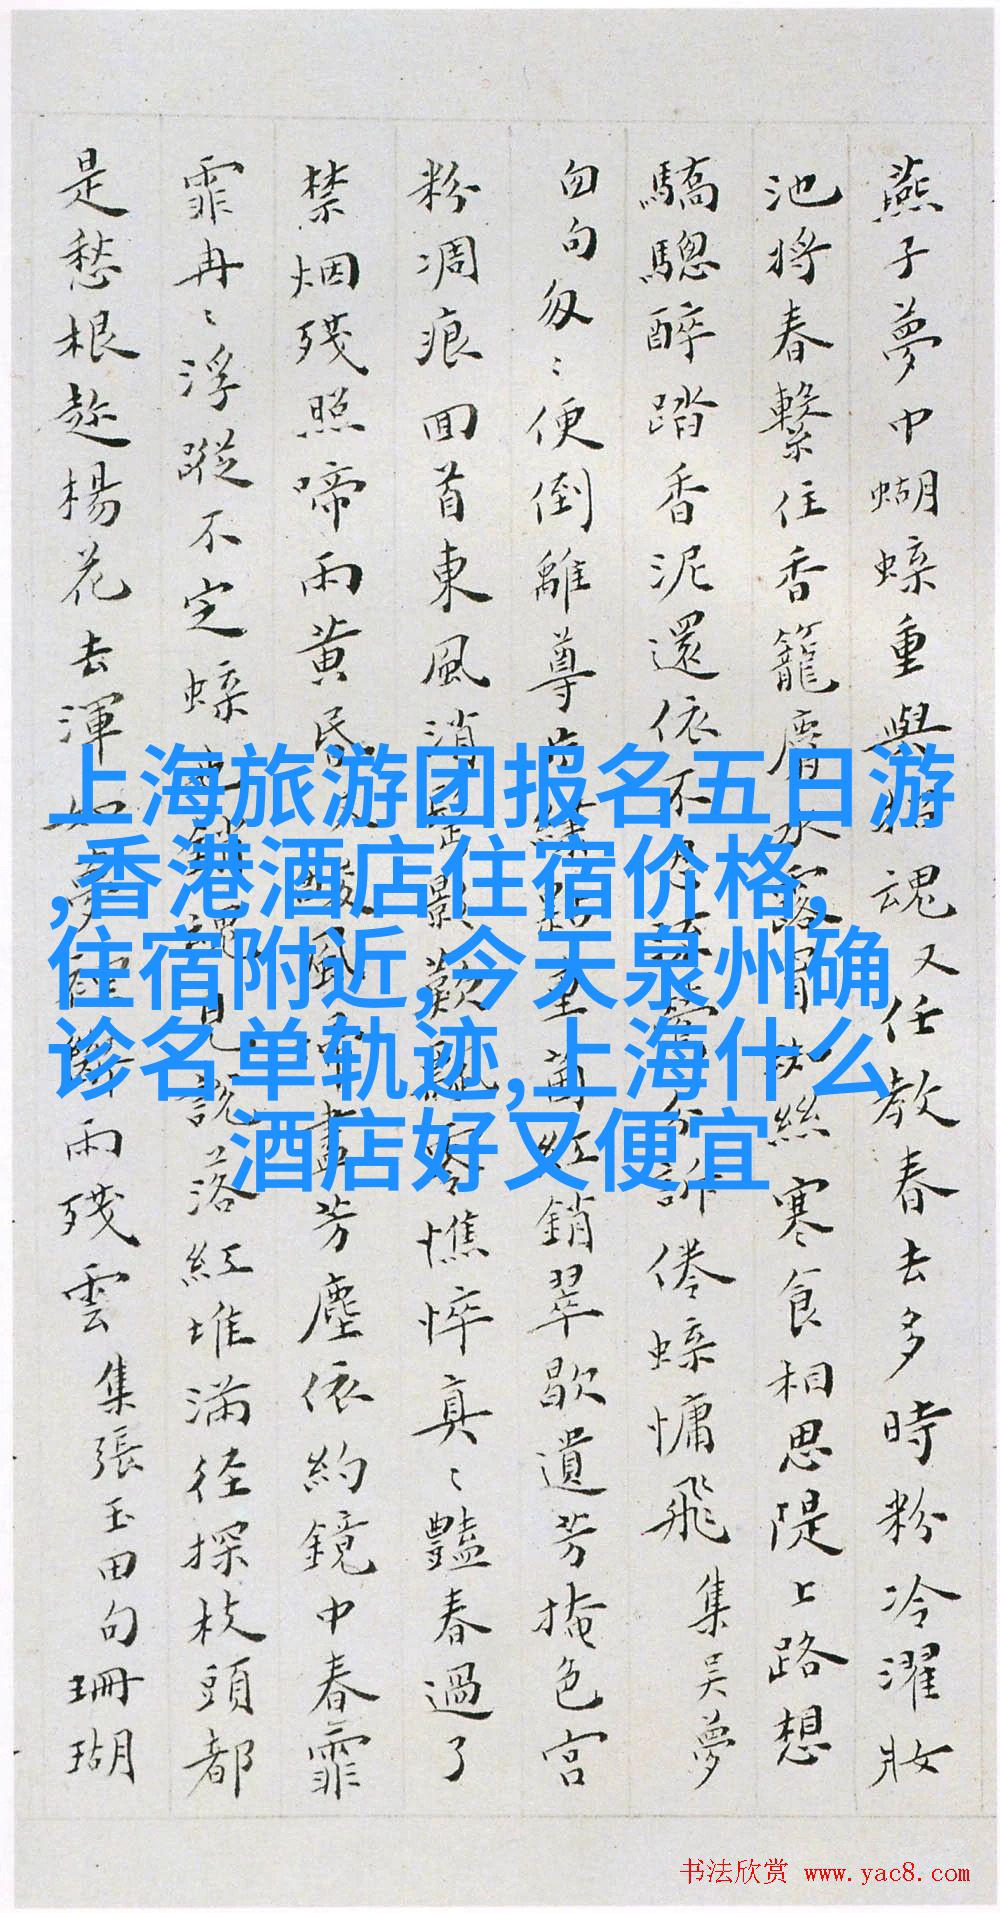 燕子夢中蝴蝶重與魂又任教春去多時粉冷濯妝
池將春繫住香籠麝水絲寒食相思隄上路想
驕驄醉踏香泥還依不分訴倦蝶慵飛 集吳夢
囱句匆〻便倒離尊重紅銷翠歇遺芳掩色宮
粉凋痕回首東風消影歎飄零憔悴真〻豔春過了
禁烟殘照啼雨黃昏酸風畫芳塵依約鏡中春霏
霏冉〻浮蹤不定蝶也銷魂見說落紅堆滿徑探枝頭都
是愁根趁楊花去渾如夢醒雨殘雲 集張玉田句珊瑚
上海旅游团报名五日游
,香港酒店住宿价格,
住宿附近,今天泉州确
诊名单轨迹,上海什么
酒店好又便宜
书法欣赏 www.yac8.com